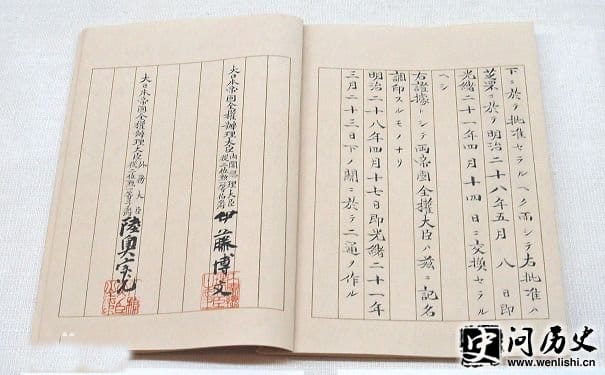 下ニ於テ批准セラルヘク而シテ右批准ハ
芝罘ニ於テ明治二十八年五月八日即
光緒二十一年四月十四日ニ交換セラル
ヘシ
右證據トシテ兩帝國全權大臣ハ茲ニ記名
調印スルモノナリ
明治二十八年四月十七日即光緒二十一年
三月二十三日下ノ關ニ於テ二通ヲ作ル
大日本帝國全權辦理大臣
內閣總理大臣
伊藤博文
大日本帝國全權辦理大臣
外務大臣
陸奧宗光
问历史
www.wenlishi.cn